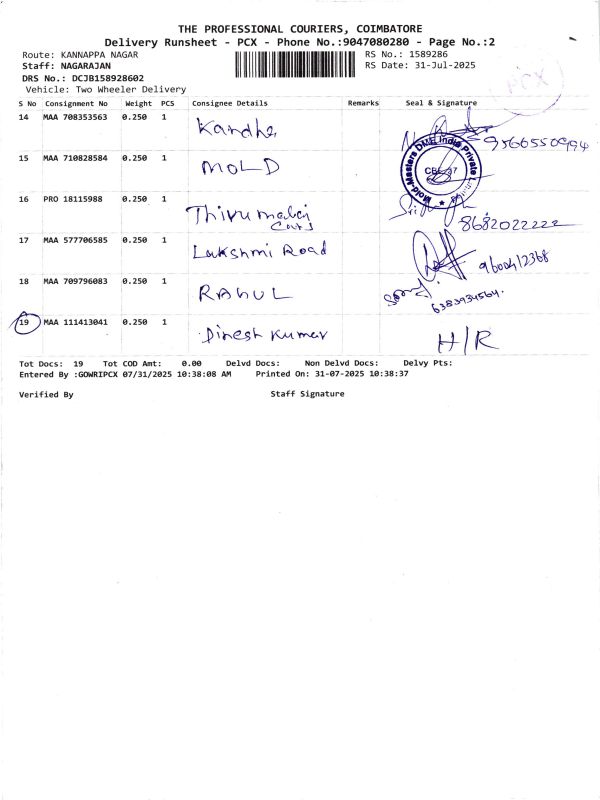 THE PROFESSIONAL COURIERS, COIMBATORE
Delivery Runsheet - PCX - Phone No.:9047080280 - Page No.:2
Route: KANNAPPA NAGAR RS No.: 1589286
Staff: NAGARAJAN RS Date: 31-Jul-2025
DRS No.: DCJB158928602
Vehicle: Two Wheeler Delivery
PCX
S No Consignment No Weight PCS Consignee Details Remarks Seal & Signature
14 MAA 708353563 0.250 1 Kandha 9566550994
15 MAA 710828584 0.250 1 MOLD
Mold-Masters DME India Private
16 PRO 18115988 0.250 1 Thirumalai
Cars 8682022222
17 MAA 577706585 0.250 1 Lakshmi Road 9600412368
18 MAA 709796083 0.250 1 RAHUL 6383934564
19 MAA 111413041 0.250 1 Dinesh Kumar H/R
Tot Docs: 19 Tot COD Amt: 0.00 Delvd Docs: Non Delvd Docs: Delvy Pts:
Entered By :GOWRIPCX 07/31/2025 10:38:08 AM Printed On: 31-07-2025 10:38:37
Verified By Staff Signature